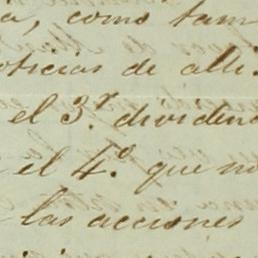 a, como tam
oticias de alli.
el 3.r dividend
el 4.o que no
las acciones